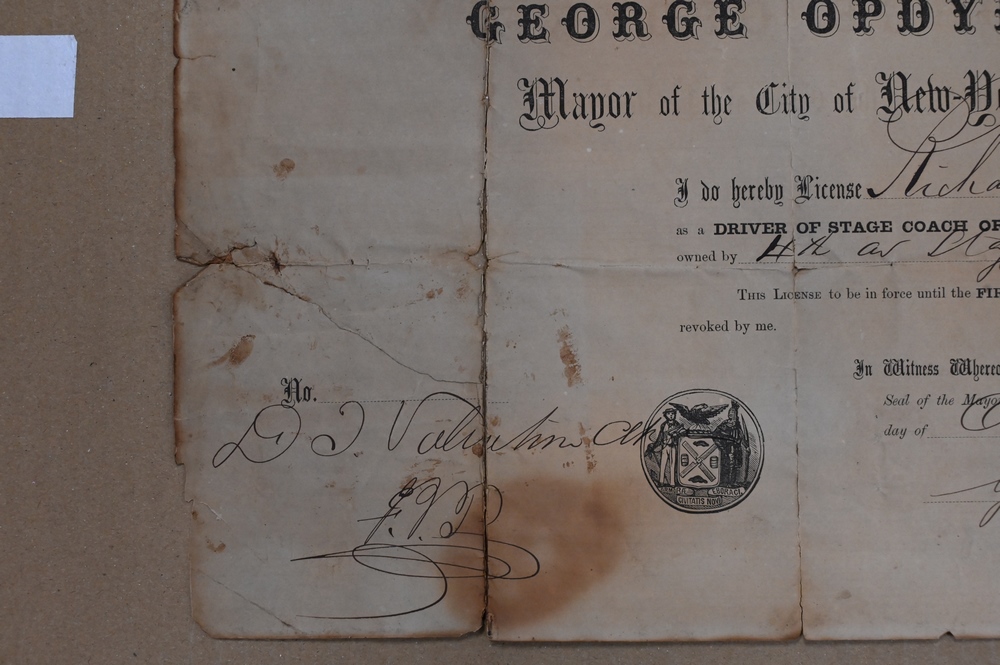 GEORGE OPDY
Mayor of the City of New-Yo
I do hereby License Richa
as a DRIVER OF STAGE COACH OR
owned by 4th av Stg
THIS LICENSE to be in force until the FIR
revoked by me.
In Witness Whereo
Seal of the Mayo
day of
No.
D T Valentine Clk
F.J.B
CIVITATIS NOVI